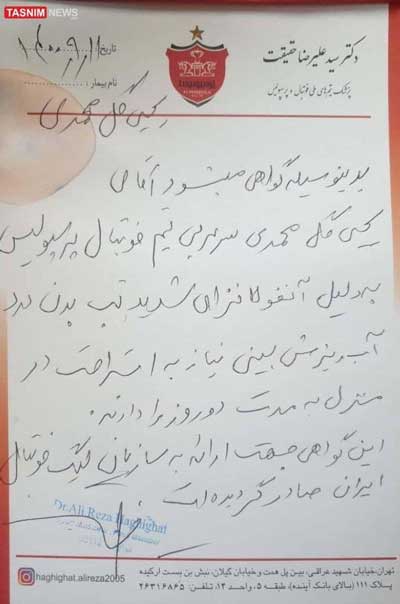 TASNIM NEWS
دکتر سید علیرضا حقیقت
پزشک تیم‌های ملی فوتبال و پرسپولیس
تاریخ: ۱۴۰۰,۹,۱۱
نام بیمار:
یحیی گل محمدی
بدینوسیله گواهی میشود آقای
یحیی گل محمدی سرمربی تیم فوتبال پرسپولیس
به دلیل آنفولانزای شدید تب بدن درد
آب ریزش بینی نیاز به استراحت در
منزل به مدت دو روز را دارند.
این گواهی جهت ارائه به سازمان لیگ فوتبال
ایران صادر گردیده است
Dr.Ali Reza Haghighat
تهران، خیابان شهید عراقی، بین پل همت و خیابان گیلان، نبش بن بست ارکیده
پلاک ۱۱۱ (بالای بانک آینده)، طبقه ۵، واحد ۱۳، تلفن: ۲۶۳۱۶۸۶۵
haghighat.alireza2005